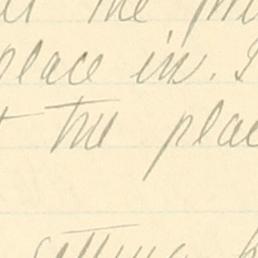 the
place in.
the place
setting